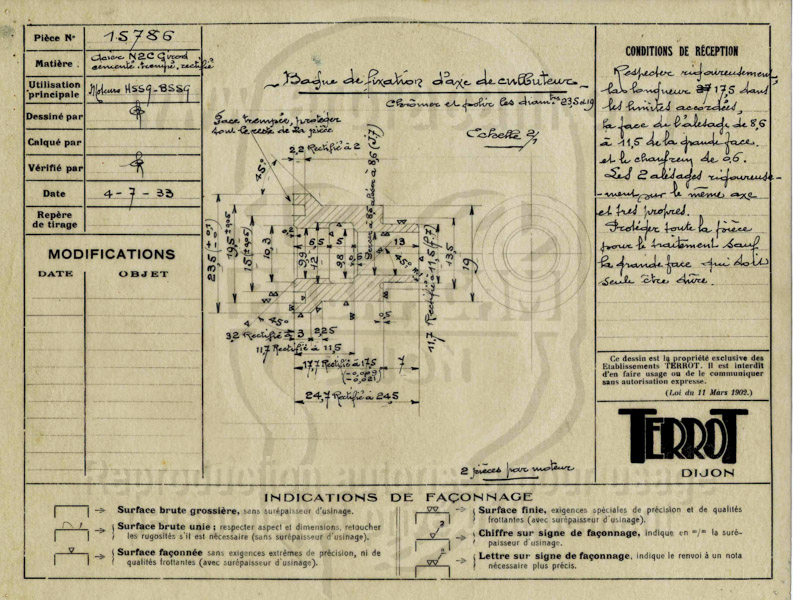 Pièce N° 15786
Matière. Acier N2C Girod
cementé. trempé. rectifié
Utilisation
principale Moteurs HSSG-BSSG
Dessiné par
Calqué par
Vérifié par
Date 4-7-33
Repère
de tirage
MODIFICATIONS
DATE OBJET
Bague de fixation d'axe de culbuteur
Chrômer et polir les diamres 23,5 et 19
Echelle 2/1
Face trempée, protéger
tout le reste de la pièce
2,2 Rectifié à 2
45°
8,6 (J7)
23,5
19,5
15
10,3
9,9
6,5
12
5
9,8
13
45°
11,7 Rectifié à 11,5 (J7)
13,5
19
4 45°
3,2 Rectifié à 3 2,25
0,5
11,7 Rectifié à 11,5
17,7 Rectifié à 17,5
(-0,009
-0,021) 7
24,7 Rectifié à 24,5
2 pièces par moteur
CONDITIONS DE RÉCEPTION
Respecter rigoureusement
la longueur 17,5 dans
les limites accordées,
la face de l'alésage de 8,6
à 11,5 de la grande face.
et le chanfrein de 0,6.
Les 2 alésages rigoureuse-
-ment sur le même axe
et très propres.
Protéger toute la pièce
pour le traitement sauf
la grande face qui doit
seule être dure.
Ce dessin est la propriété exclusive des
Etablissements TERROT. Il est interdit
d'en faire usage ou de le communiquer
sans autorisation expresse.
(Loi du 11 Mars 1902.)
TERROT
DIJON
INDICATIONS DE FAÇONNAGE
Surface brute grossière, sans surépaisseur d'usinage.
Surface brute unie ; respecter aspect et dimensions, retoucher
les rugosités s'il est nécessaire (sans surépaisseur d'usinage).
Surface façonnée sans exigences extrêmes de précision, ni de
qualités frottantes (avec surépaisseur d'usinage).
Surface finie, exigences spéciales de précision et de qualités
frottantes (avec surépaisseur d'usinage).
Chiffre sur signe de façonnage, indique en m/m la suré-
paisseur d'usinage.
Lettre sur signe de façonnage, indique le renvoi à un nota
nécessaire plus précis.